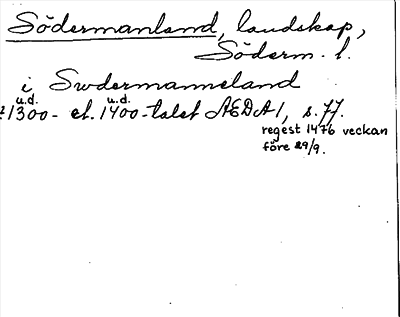 Södermanland, landskap,
Söderm. l.
i Swdermanneland
u.d. u.d.
1300- el. 1400-talet ÆDA 1, s. 77.
regest 1476 veckan
före 29/9.